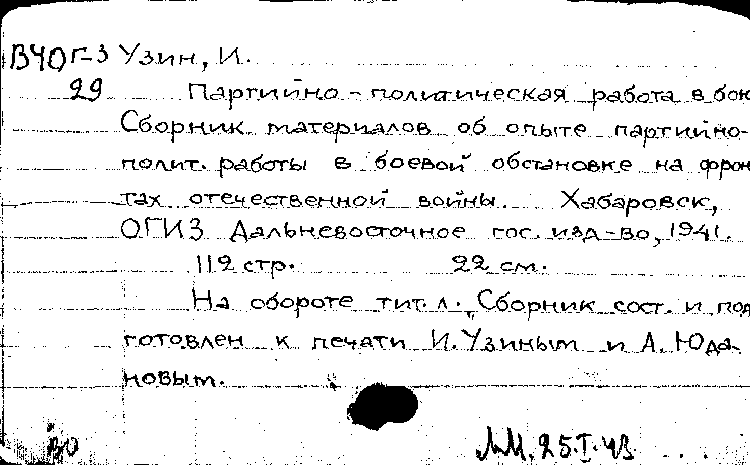 ВЧОГ-3 Узин, И.
29 Партийно-политическая работа в бою
Сборник материалов об опыте партийно-
полит. работы в боевой обстановке на фрон
тах отечественной войны. Хабаровск,
ОГИЗ Дальневосточное гос. изд-во, 1941.
112 стр. 22 см.
На обороте тит. л. „Сборник сост. и под
готовлен к печати И. Узиным и А. Юда-
новым.
ЛМ. 25.I.43